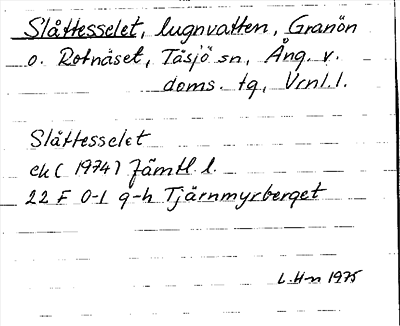 Slåttesselet, lugnvatten, Granön
o. Rotnäset, Tåsjö sn, Ång. v.
doms. tg, Vrnl. l.
Slåttesselet
ek ( 1974) Jämtl. l.
22 F 0-1 g-h Tjärnmyrberget
L.H-n 1975